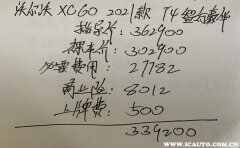 沃尔沃 XC60 2021款 T4 智远豪华
指导价: 362900
裸车价: 302900
必要费用: 27782
商业险: 8012
上牌费: 500
339200
爱卡汽车
www.icauto.com.cn